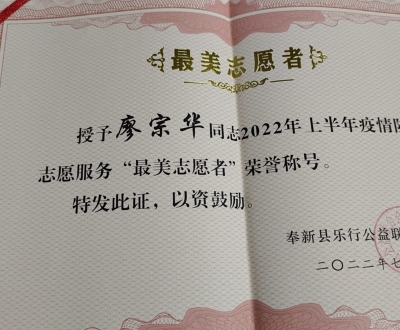 最美志愿者
授予廖宗华同志2022年上半年疫情防
志愿服务“最美志愿者”荣誉称号。
特发此证，以资鼓励。
奉新县乐行公益联
二〇二二年七